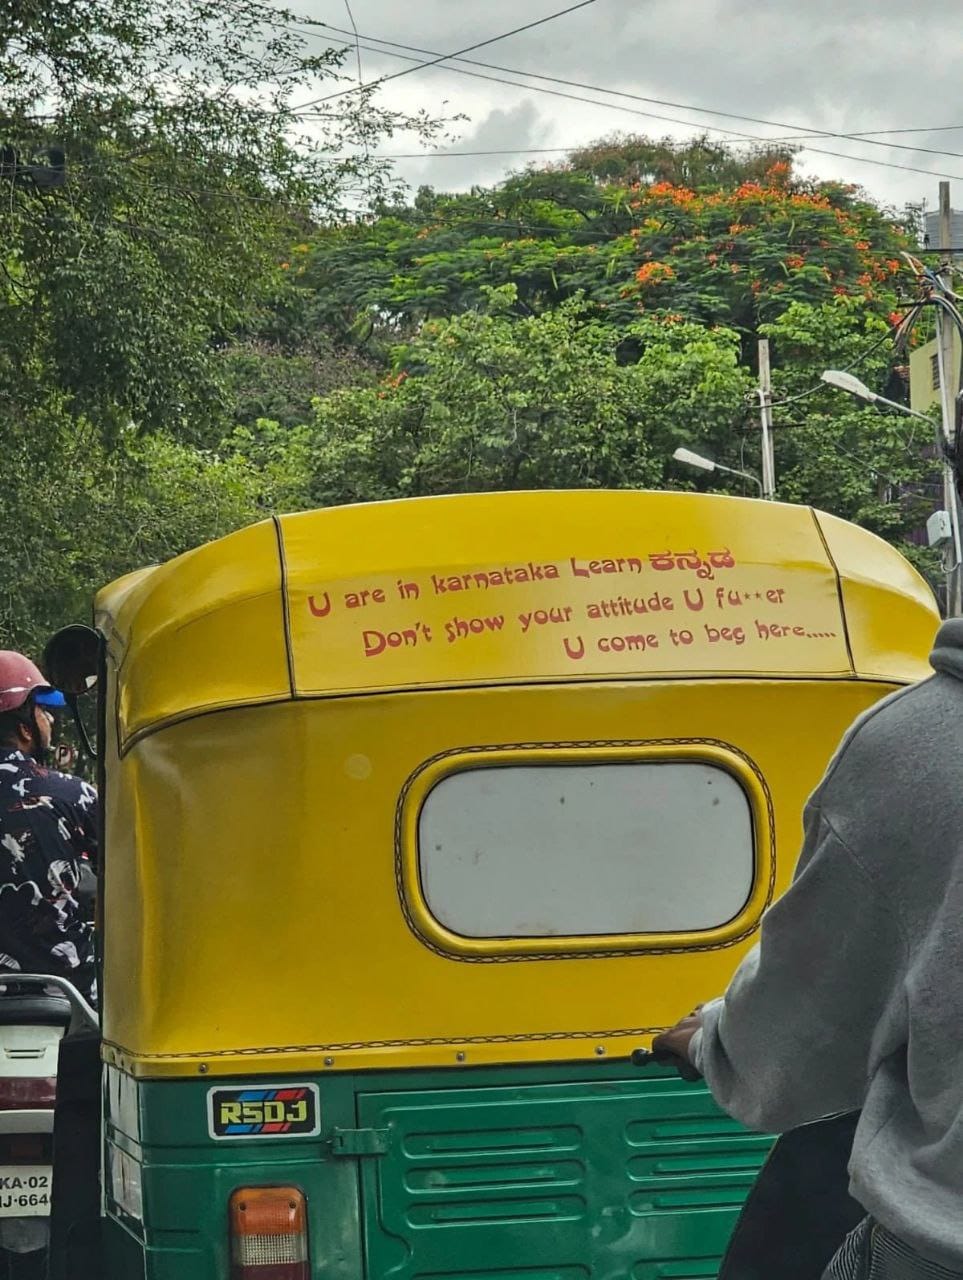 U are in karnataka Learn ಕನ್ನಡ
Don't show your attitude U fu**er
U come to beg here.....
RSDJ
KA·02
J·664